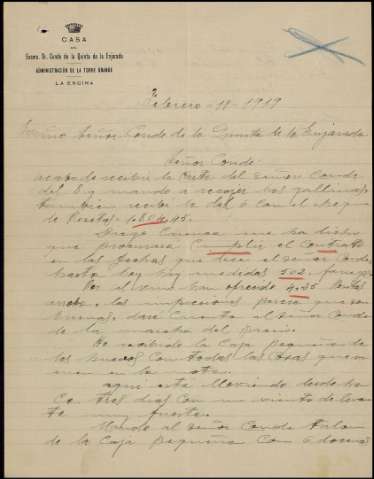 CASA
DEL
Excmo. Sr. Conde de la Quinta de la Enjarada
ADMINISTRACIÓN DE LA TORRE GRANDE
LA ENCINA
Febrero-11-1919
Excmo Señor Conde de la Quinta de la Enjarada
Señor Conde
acabo de recibir la Carta del Señor Conde
del 8 y mando a recojer las gallinas
tambien recibi la del 6 con el cheque
de Pesetas 1.884,45.
Diego Cuenca me ha dicho
que procurará Cumplir el Contrato
en las fechas que dice el señor Conde
hasta hoy hay medidas 502 fanegas
Por el vino han ofrecido 4,25 Pesetas
las impresiones parece que son
buenas, daré Cuenta al señor Conde
de la marcha del precio.
He recibido la Caja pequeña de
los huevos Con todas las cosas que
en la nota.
aqui está lloviendo desde ha
Ce tres dias con un viento de levan
te muy fuerte.
Mando al señor Conde talon
de la Caja pequeña Con 6 docenas